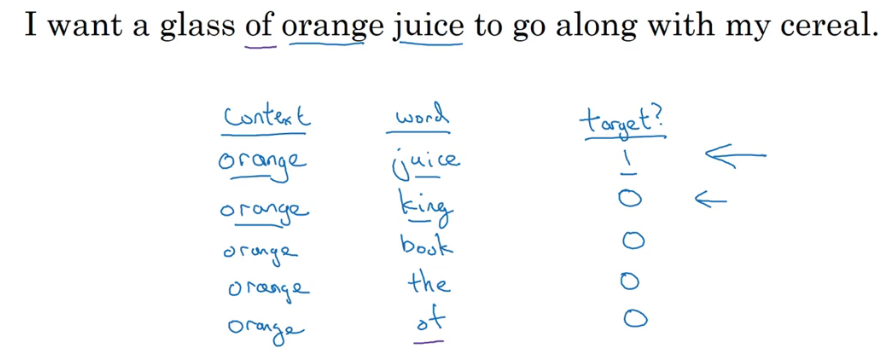 I want a glass of orange juice to go along with my cereal.
Context word target?
orange juice 1
orange king 0
orange book 0
orange the 0
orange of 0